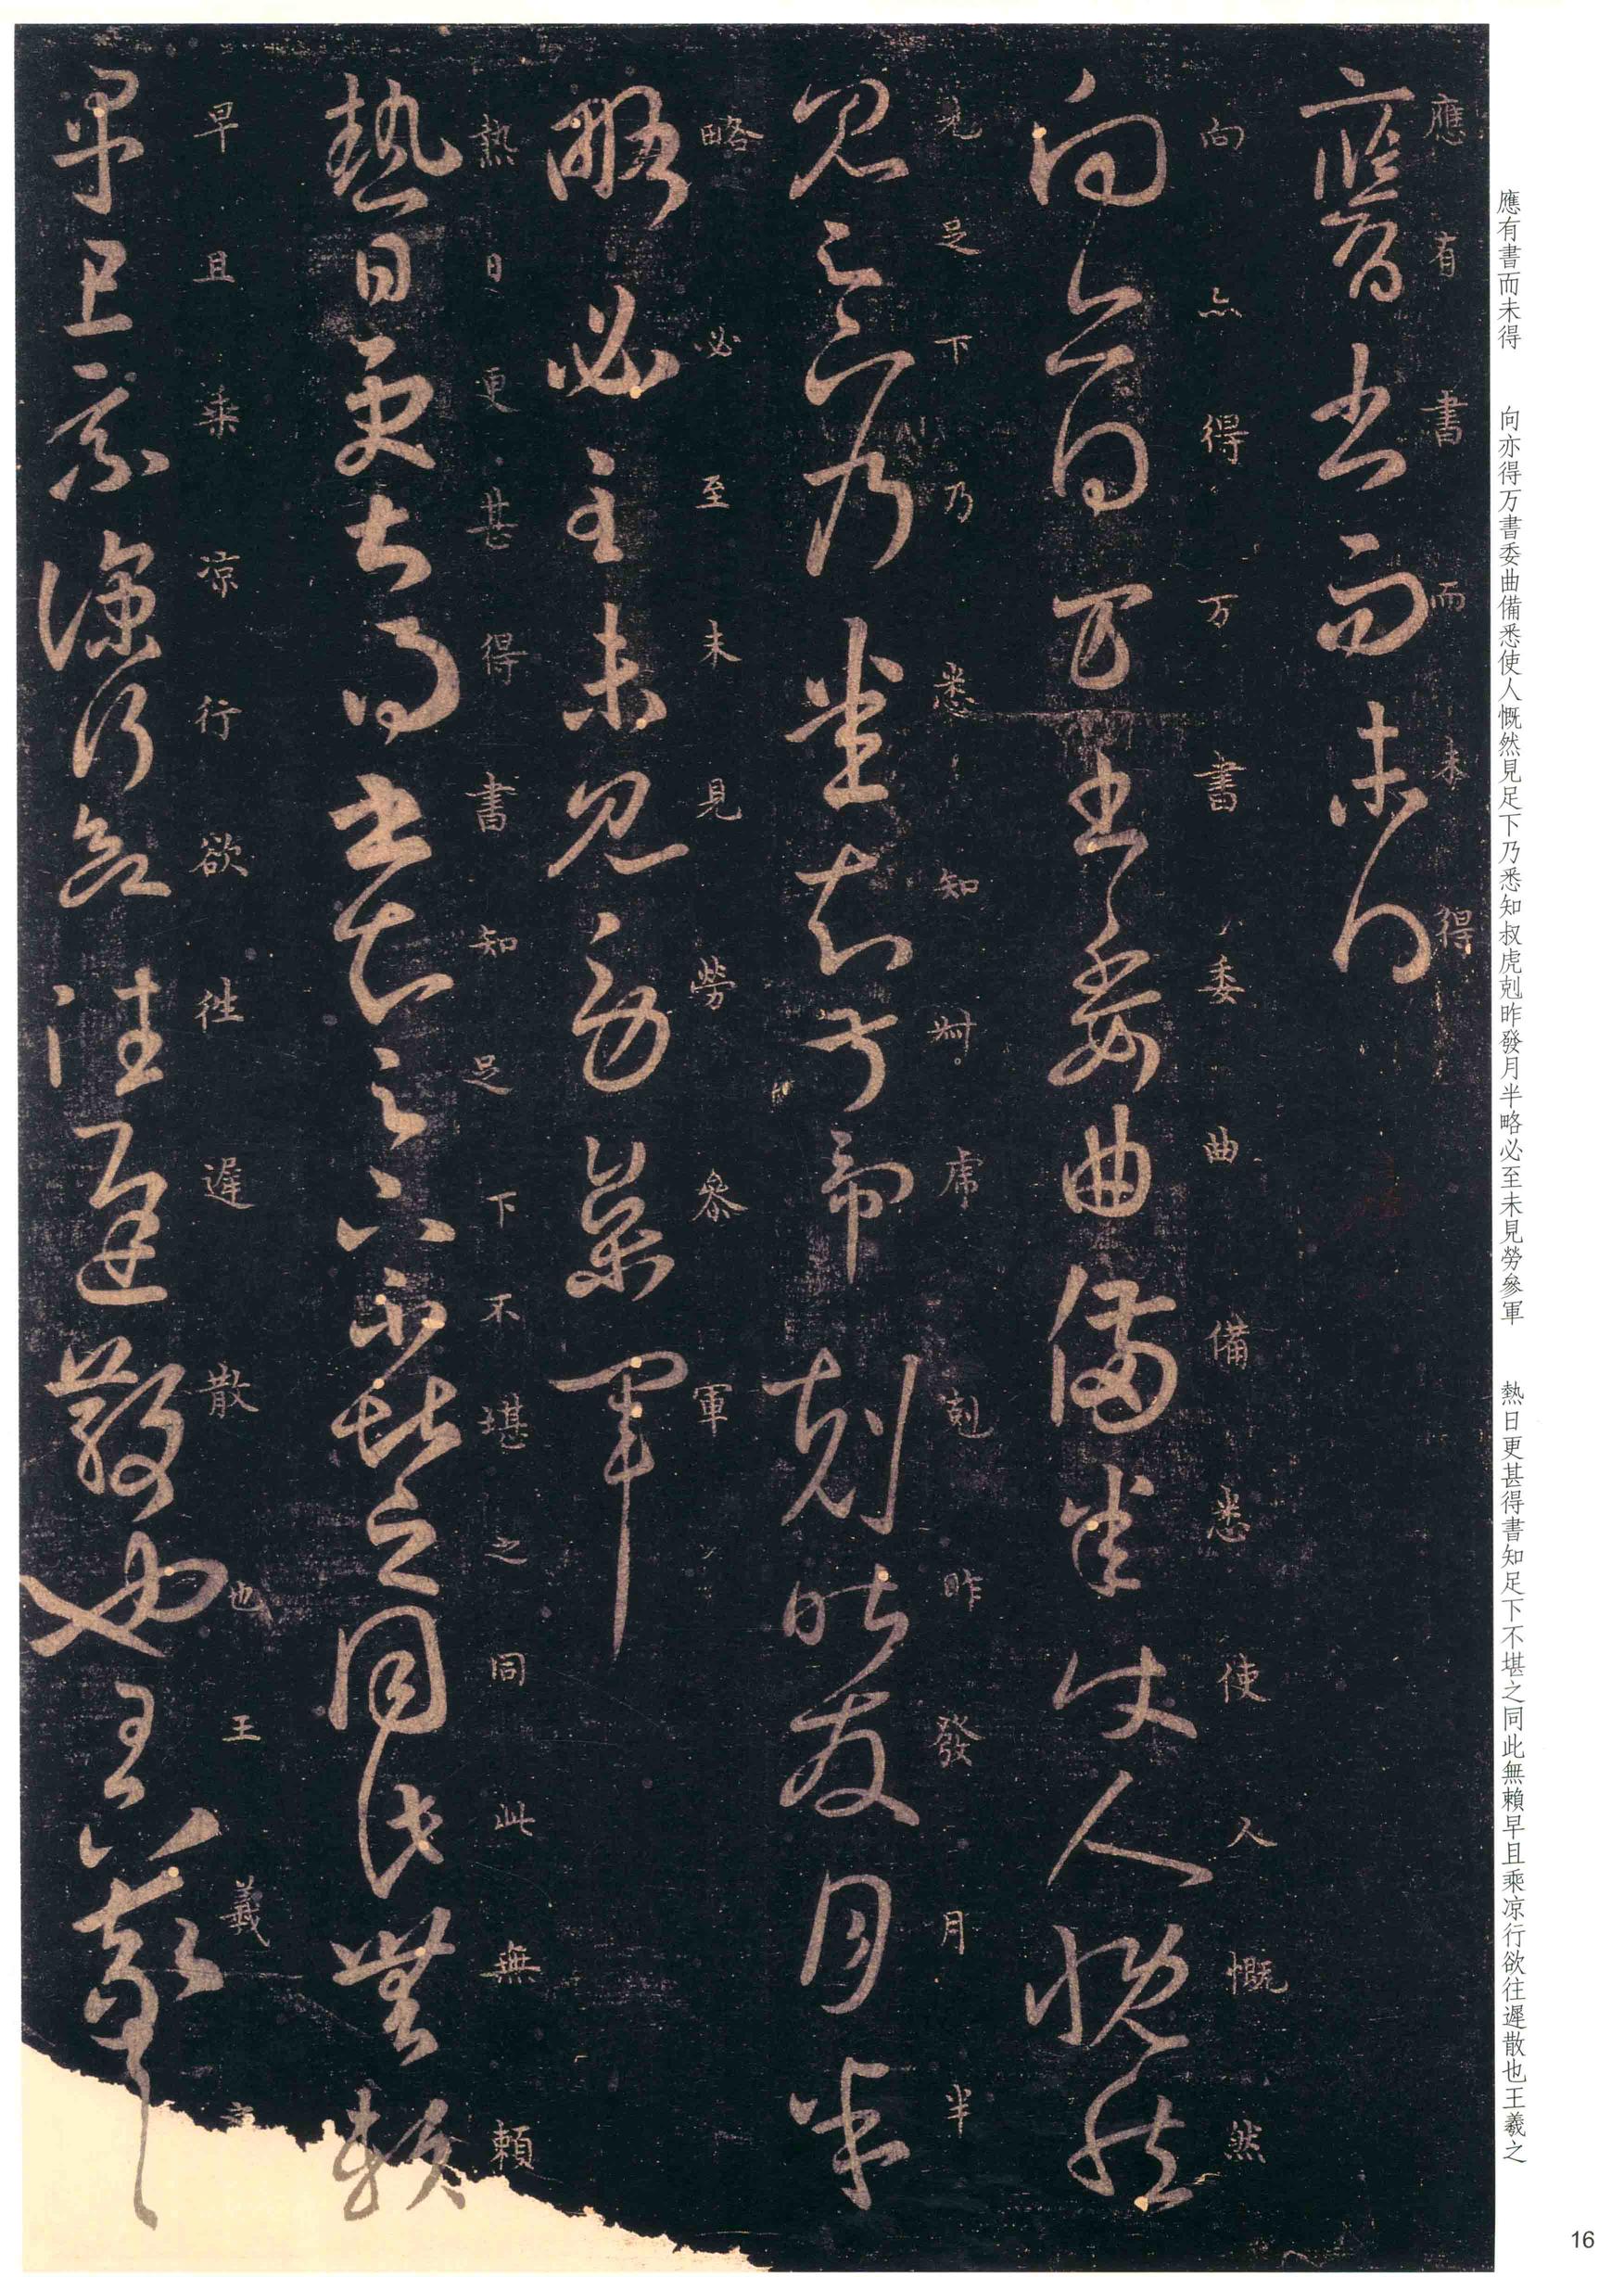 應有書而未得　向亦得万書委曲備悉使人慨然見足下乃悉知叔虎剋昨發月半略必至未見勞參軍　熱日更甚得書知足下不堪之同此無賴早且乘凉行欲往遲散也王羲之
應有書而未得
應有書而未得
向亦得万書委曲備悉使人慨然
向亦得万書委曲備悉使人慨然
見足下乃悉知叔虎剋昨發月半
見足下乃悉知叔虎剋昨發月半
略必至未見勞參軍
略必至未見勞參軍
熱日更甚得書知足下不堪之同此無賴
熱日更甚得書知足下不堪之同此無賴
早且乘凉行欲往遲散也王羲之
早且乘凉行欲往遲散也王羲之
16